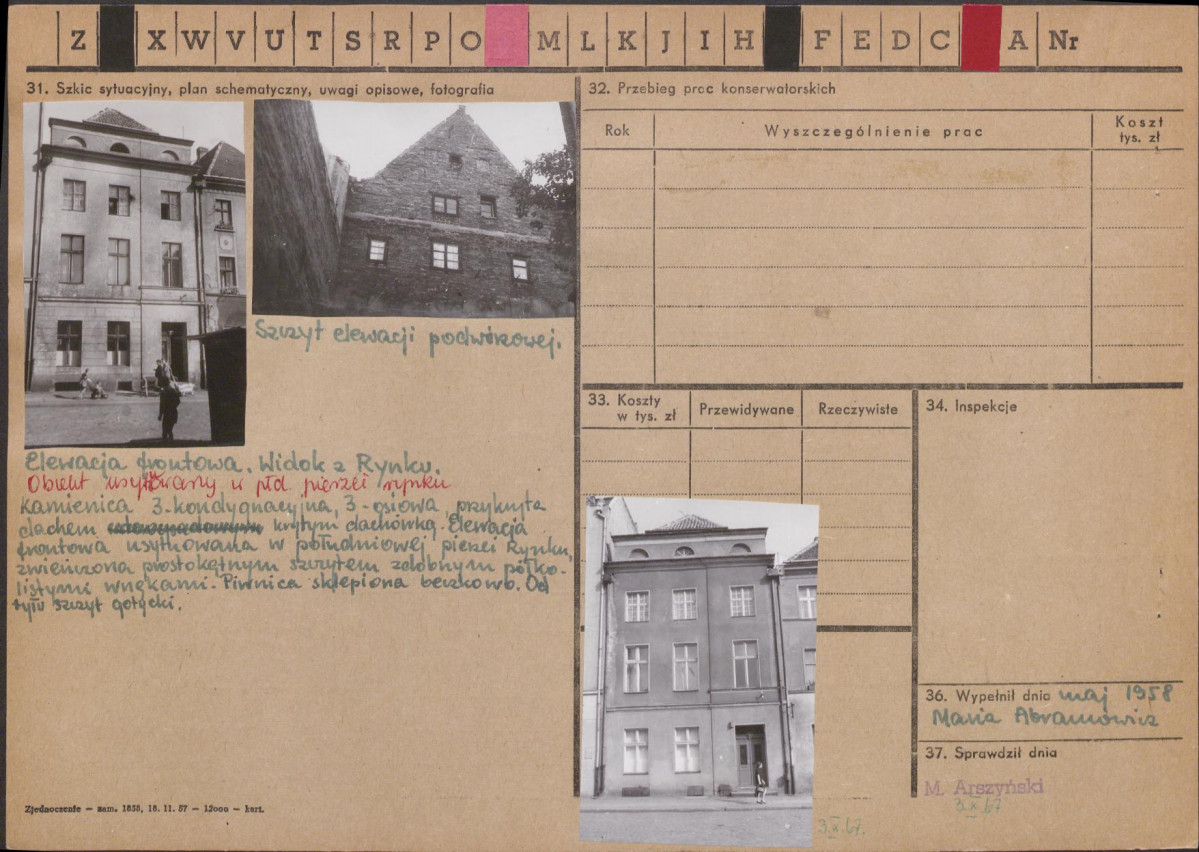 Z X W V U T S R P O M L K J I H F E D C A Nr
31. Szkic sytuacyjny, plan schematyczny, uwagi opisowe, fotografia
Szczyt elewacji podwórzowej.
Elewacja frontowa. Widok z Rynku.
Obiekt usytuowany w płd pierzei rynku
Kamienica 3-kondygnacyjna, 3-osiowa, przykryta
dachem krytym dachówką. Elewacja
frontowa usytuowana w południowej pierzei Rynku,
zwieńczona prostokątnym szczytem zdobnym półko-
listymi wnękami. Piwnica sklepiona beczkowo. Od
tyłu szczyt gotycki.
Zjednoczenie — zam. 1858, 16. 11. 57 — 12000 — kart.
32. Przebieg prac konserwatorskich
Rok
Wyszczególnienie prac
Koszt
tys. zł
33. Koszty
w tys. zł
Przewidywane
Rzeczywiste
34. Inspekcje
36. Wypełnił dnia maj 1958
Maria Abramowicz
37. Sprawdził dnia
M. Arszyński
3.X.67
3.X.67.